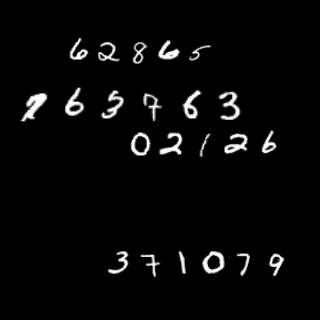 62865
265763
02126
371079